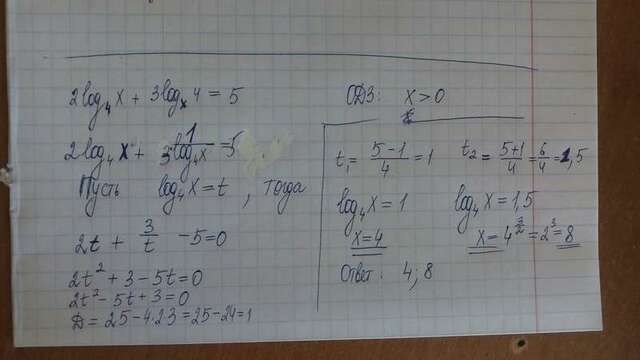 2log₄x + 3logₓ4 = 5
2log₄x + 3 1/log₄x = 5
Пусть log₄x = t, тогда
2t + 3/t - 5 = 0
2t² + 3 - 5t = 0
2t² - 5t + 3 = 0
D = 25 - 4·2·3 = 25 - 24 = 1
ОДЗ: x > 0
t₁ = (5-1)/4 = 1 t₂ = (5+1)/4 = 6/4 = 1,5
log₄x = 1 log₄x = 1,5
x = 4 x = 4^(3/2) = 2³ = 8
Ответ: 4; 8